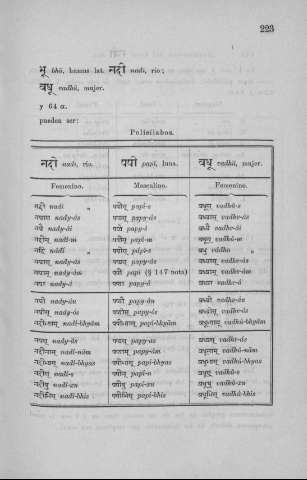 223
भू bhū, humus lat. नदी nadī, río;
वधू vadhū, mujer.
y 64 a.
pueden ser:
Polisílabos.
नदी nadī, río. पपी papī, luna. वधू vadhū, mujer.
Femenino. Masculino. Femenino.
नदी nadī „ पपीस् papī-s वधूस् vadhū-s
नद्यास् nady-ās पप्यस् papy-as वध्वास् vadhv-ās
नद्यै nady-āi पप्ये papy-ē वध्वै vadhv-āi
नदीम् nadī-m पपीम् papī-m वधूम् vadhū-m
नदि nadi „ पपीस् papī-s वधु vadhu „
नद्यास् nady-ās पप्यस् papy-as वध्वास् vadhv-ās
नद्याम् nady-ām पपी papī (§ 147 nota) वध्वाम् vadhv-ām
नद्या nady-ā पप्या papy-ā वध्वा vadhv-ā
नद्यौ nady-āu पप्यौ papy-āu वध्वौ vadhv-āu
नद्योस् nady-ōs पप्योस् papy-ōs वध्वोस् vadhv-ōs
नदीभ्याम् nadī-bhyām पपीभ्याम् papī-bhyām वधूभ्याम् vadhū-bhyām
नद्यस् nady-as पप्यस् papy-as वध्वस् vadhv-as
नदीनाम् nadī-nām पप्याम् papy-ām वधूनाम् vadhū-nām
नदीभ्यस् nadī-bhyas पपीभ्यस् papī-bhyas वधूभ्यस् vadhū-bhyas
नदीस् nadī-s पपीन् papī-n वधूस् vadhū-s
नदीषु nadī-ṣu पपीषु papī-ṣu वधूषु vadhū-ṣu
नदीभिस् nadī-bhis पपीभिस् papī-bhis वधूभिस् vadhū-bhis